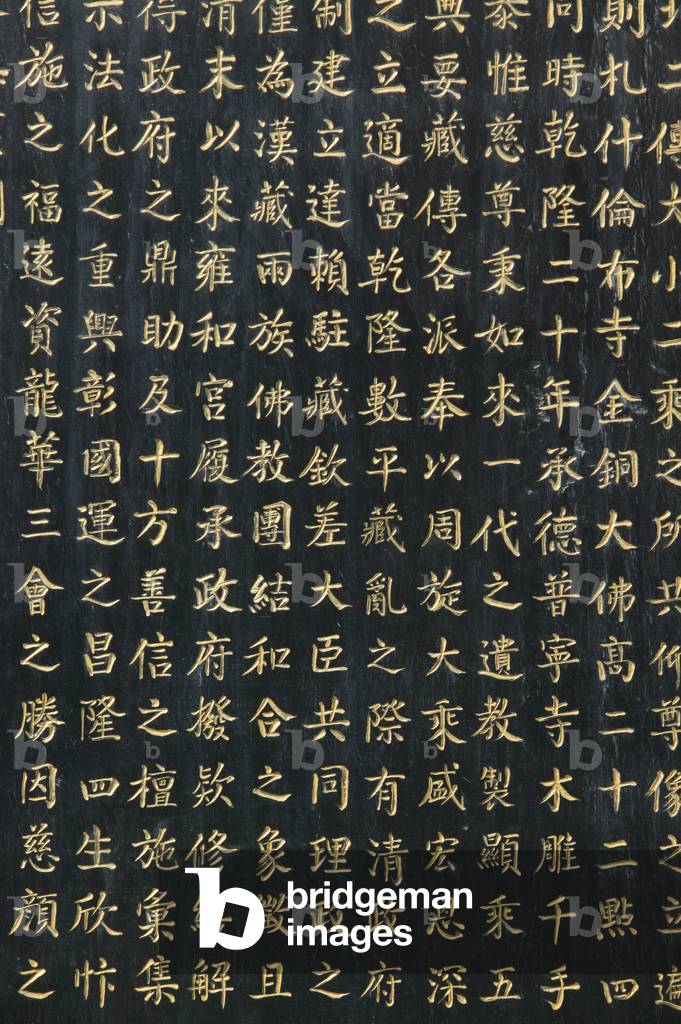 二傳大小二乘之所共仰尊像之立遍
則札什倫布寺金銅大佛高二十二點四
同時乾隆二十年承德普寧寺木雕千手
泰惟慈尊秉如來一代之遺教製顯乘五
典要藏傳各派奉以周旋大乘盛宏恩深
之立適當乾隆數平藏亂之際有清政府
制建立達賴駐藏欽差大臣共同理政之
僅為漢藏兩族佛教團結和合之象徵且
清末以來雍和宮履承政府撥款修解
得政府之鼎助及十方善信之檀施彙集
示法化之重興彰國運之昌隆四生欣忭
信施之福遠資龍華三會之勝因慈顏之
b bridgeman
images